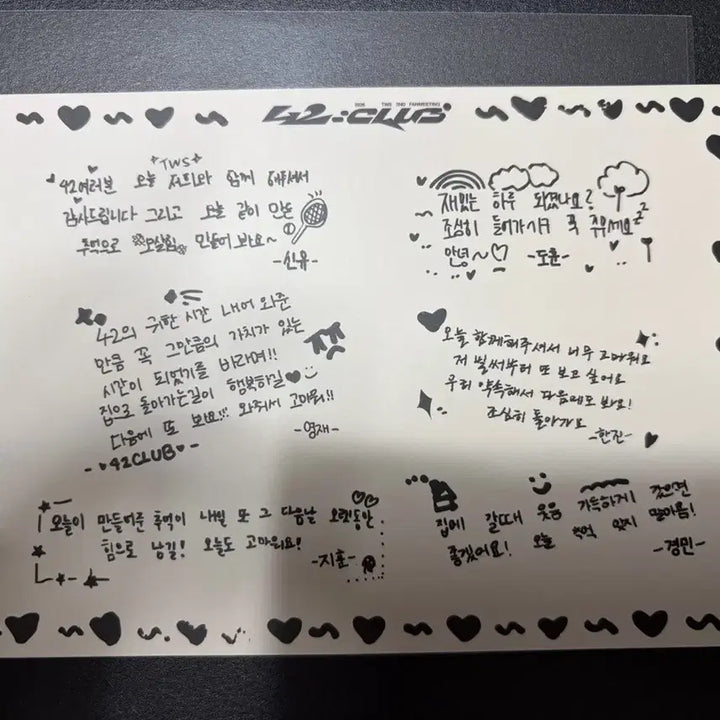 2026 TWS 2ND FANMEETING
42:CLUB
TWS
42여러분 오늘 저희와 함께 해주셔서
감사드립니다 그리고 오늘 같이 만든
추억으로 열심히 만들어 봐요~
-신유-
재밌는 하루 되셨나요?
조심히 들어가시구 푹 주무세요 zzz
안녕~♡ -도훈-
42의 귀한 시간 내어 와준
만큼 꼭 그만큼의 가치가 있는
시간이 되었기를 바라며!!
집으로 돌아가는길이 행복하길♥
다음에 또 봐요!! 와줘서 고마워!!
-영재-
42CLUB
오늘 함께해주셔서 너무 고마워요
저 벌써부터 또 보고 싶어요
우리 약속해서 다음에도 봐요!
조심히 돌아가요
-한진-
오늘이 만들어준 추억이 내일 또 그 다음날 오랫동안
힘으로 남길! 오늘도 고마워요!
-지훈-
집에 갈때 웃음 가득하게 갔으면
좋겠어요! 오늘 추억 잊지 말아욤!
-경민-